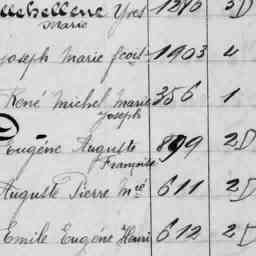 Yves 1290 3D
Marie
Joseph Marie 1903 4
René Michel Marie 356 1
Joseph
Eugène Auguste 899 2D
Françoise
Auguste Pierre Mie 611 2D
Emile Eugène Henri 612 2D